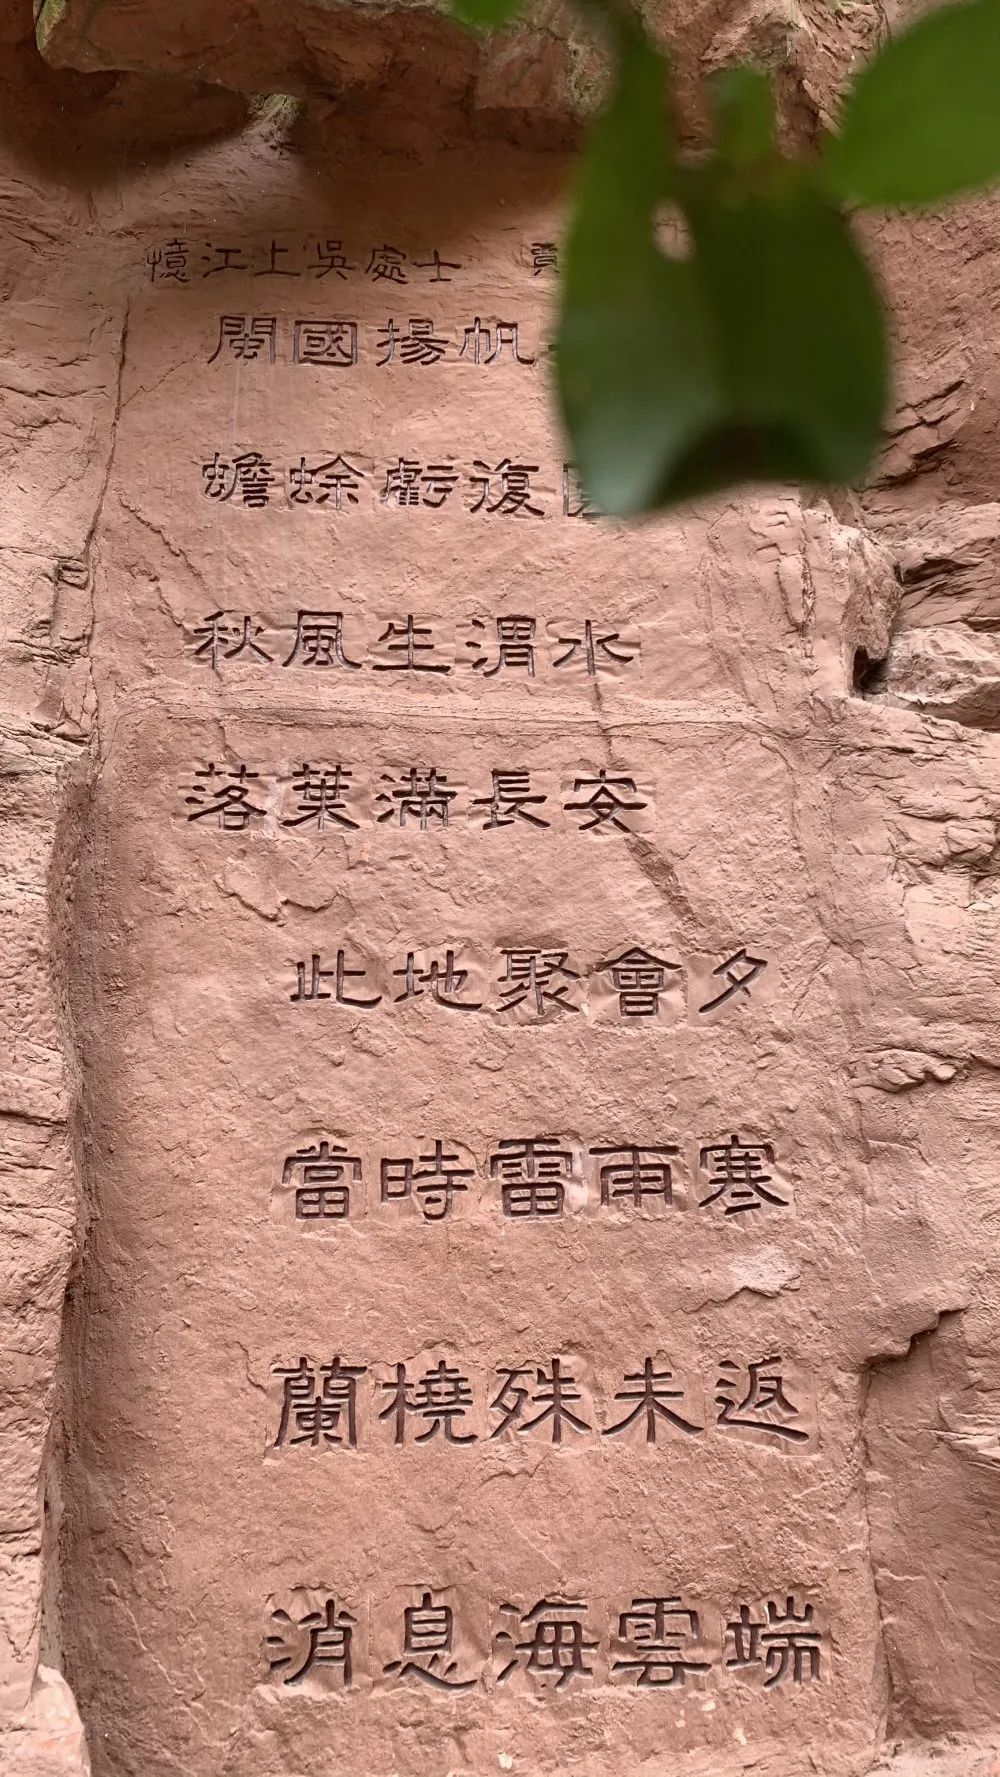 憶江上吳處士 賈
閩國揚帆
蟾蜍虧復
秋風生渭水
落葉滿長安
此地聚會夕
當時雷雨寒
蘭橈殊未返
消息海雲端